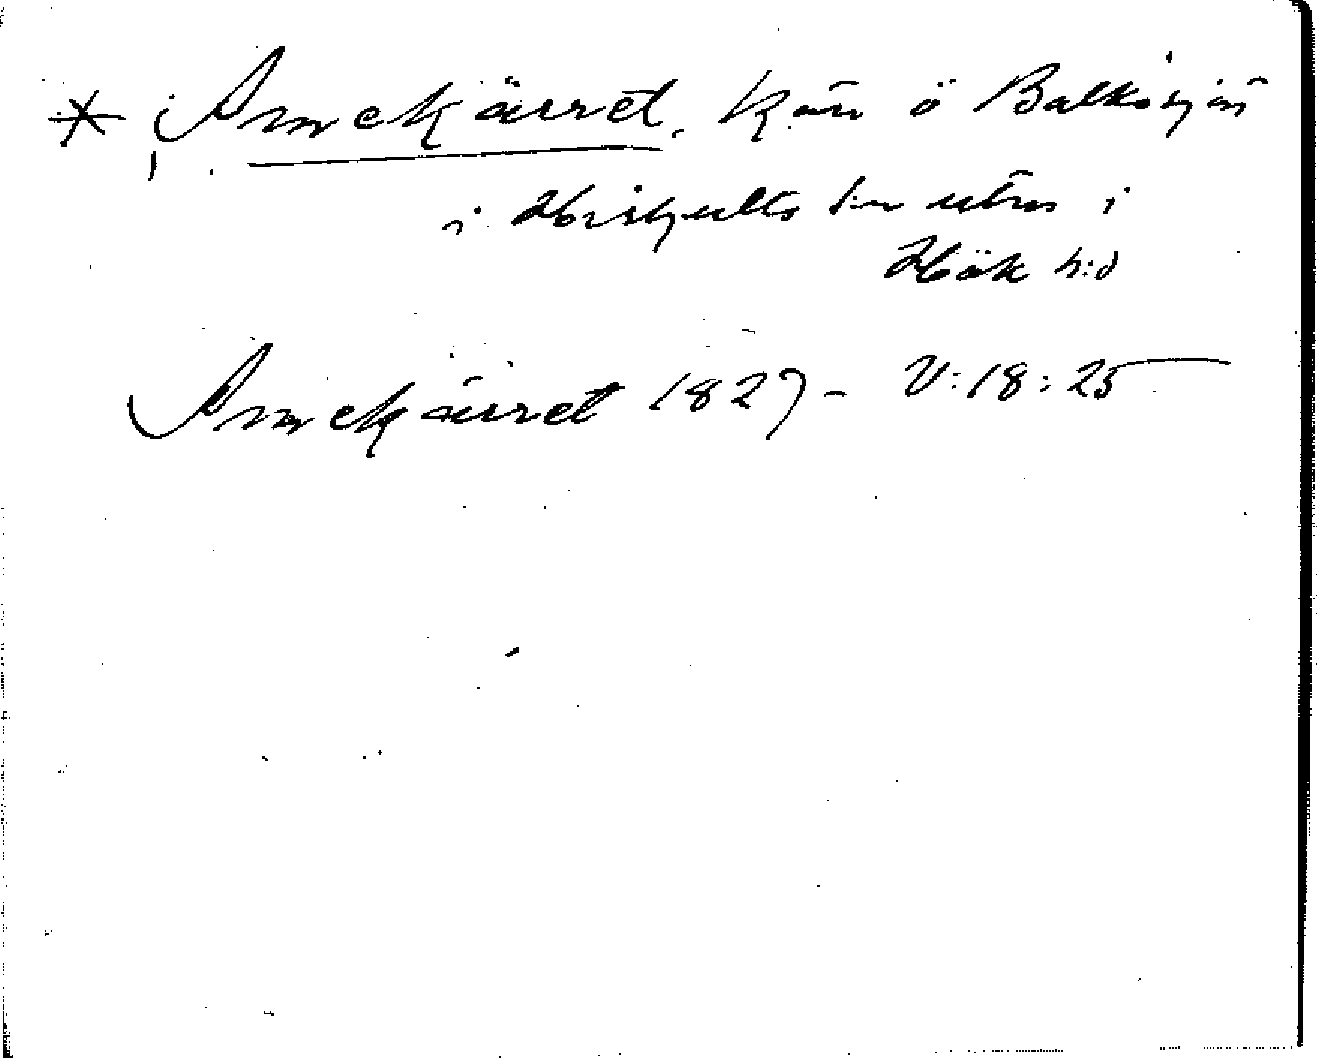 * Amekärret. Kärr ö Balkåsjön
i Hishults s:n utm i
Hök h:d
Amekärret 1827 - V:18:25